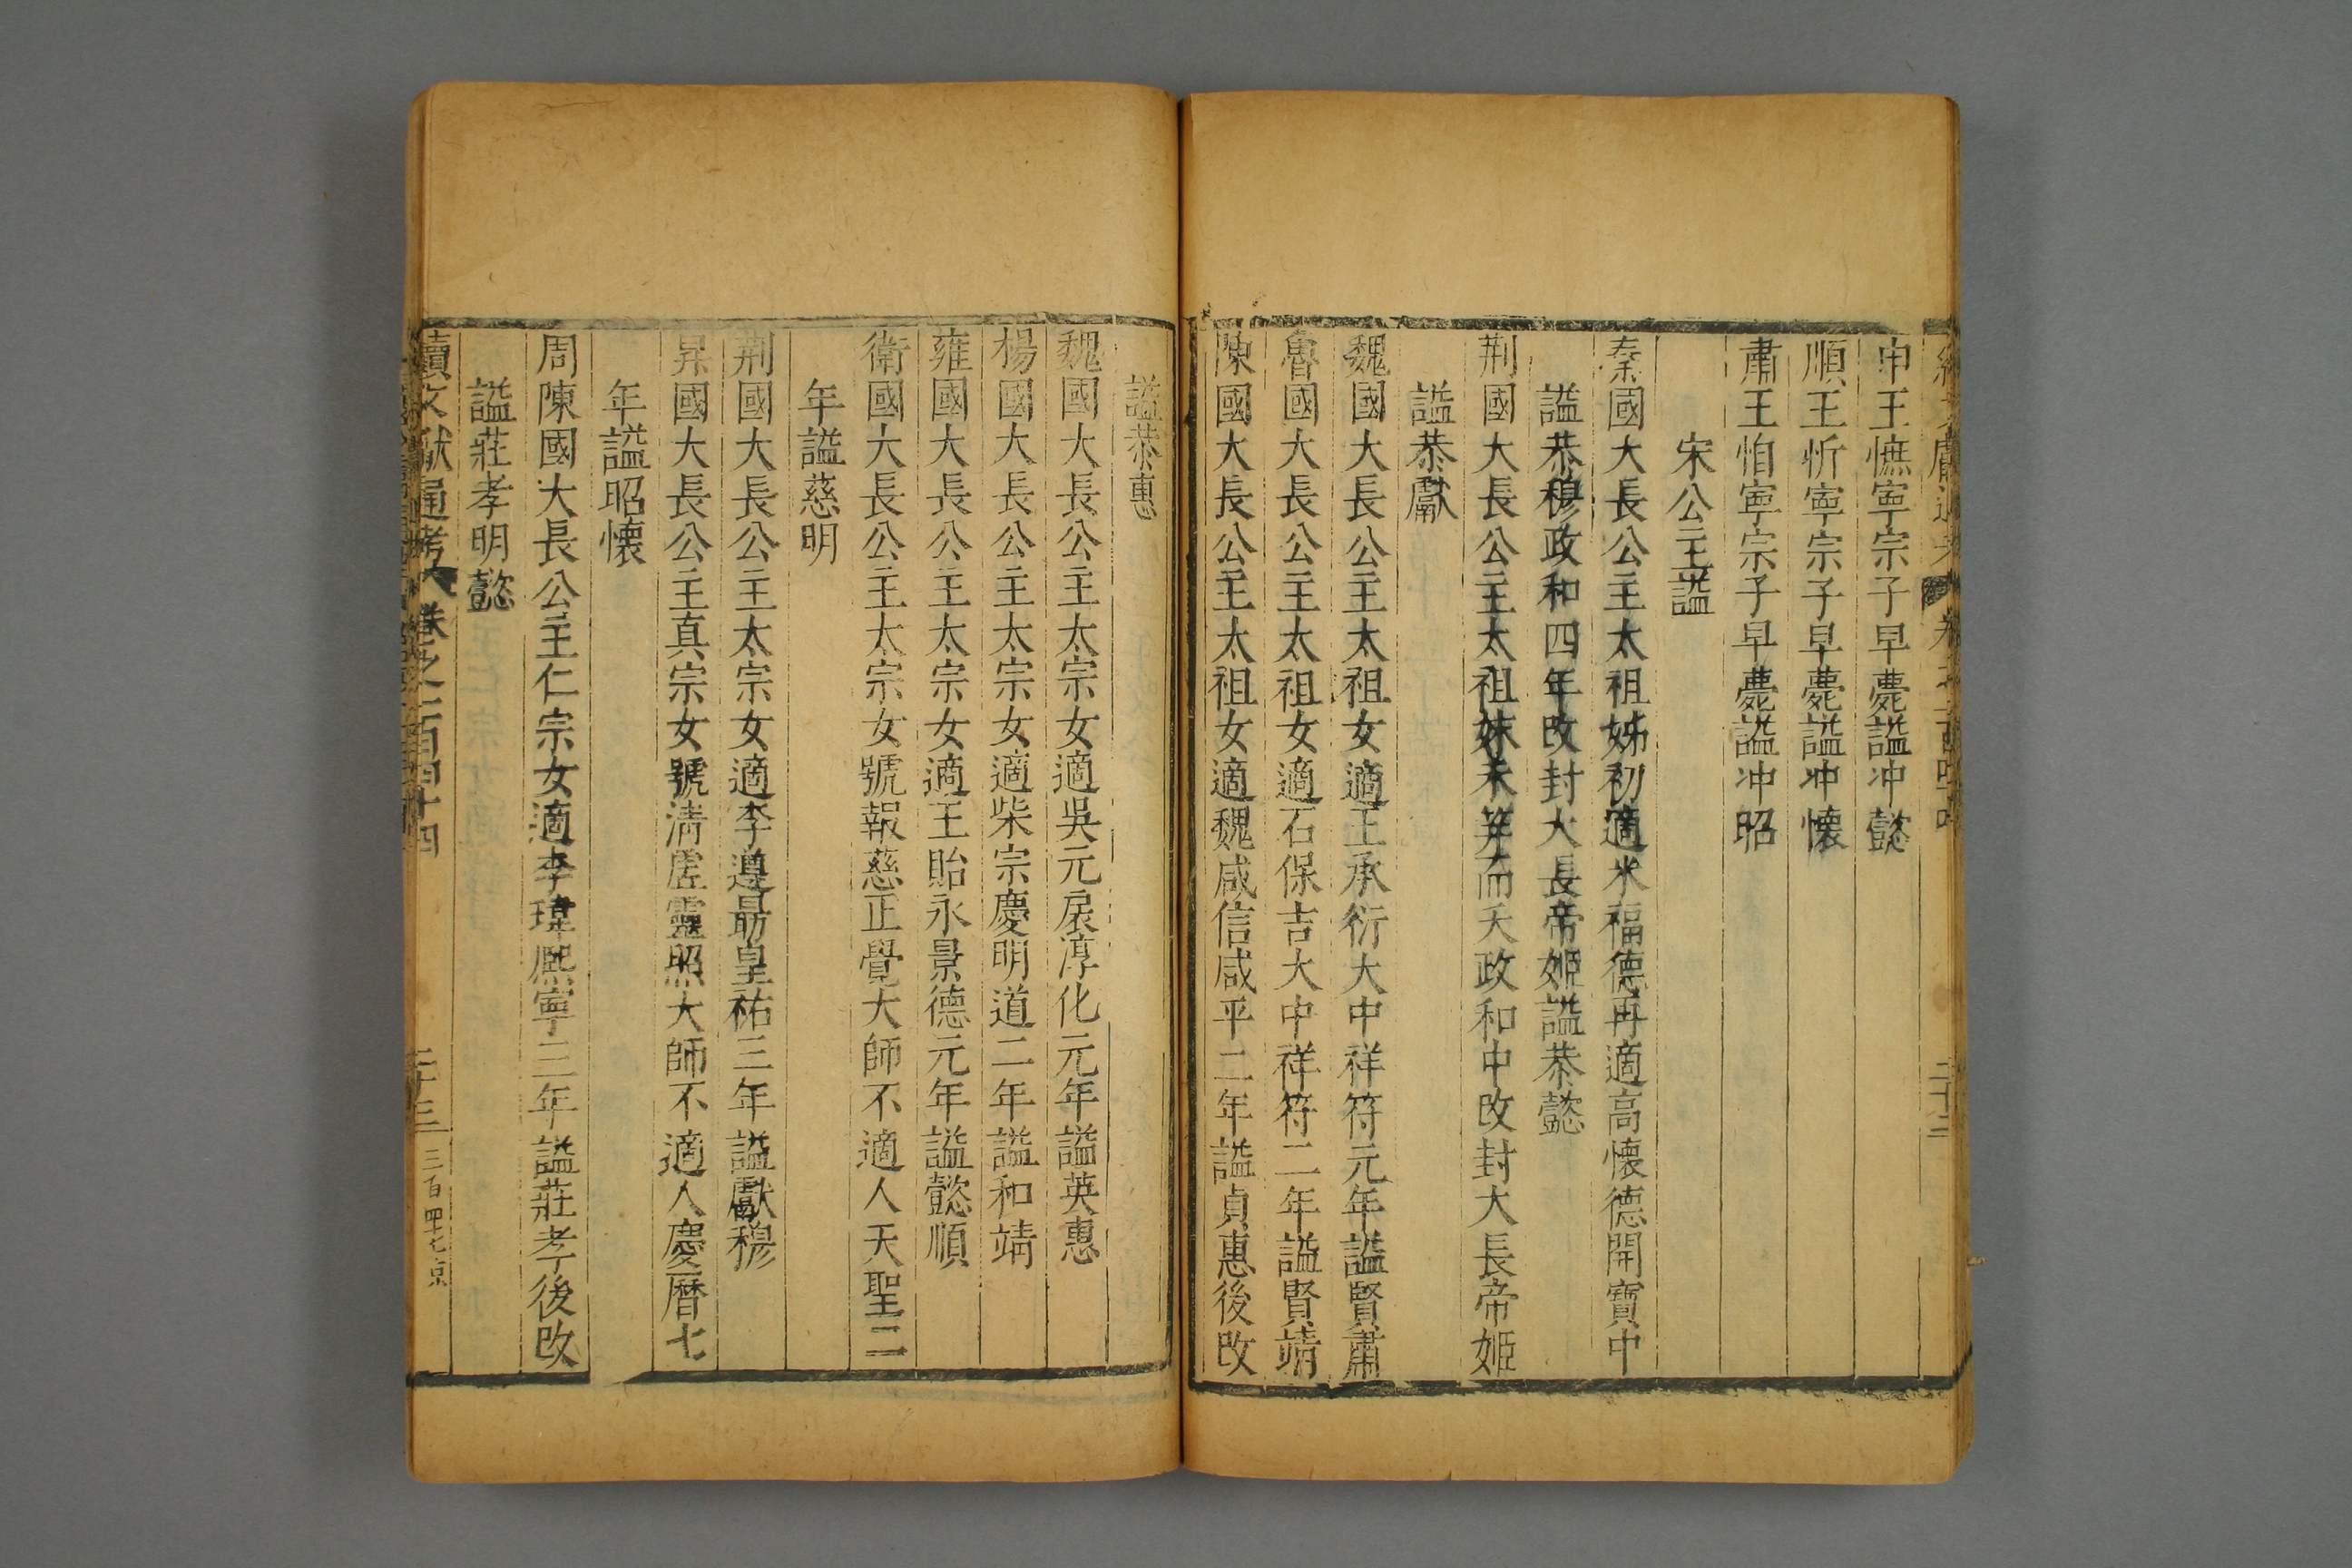 申王憮寧宗子早薨謚冲懿
順王忻寧宗子早薨謚冲懷
肅王怕寧宗子早薨謚冲昭
宋公主謚
秦國大長公主太祖姊初適米福德再適高懷德開寶中
謚恭穆政和四年改封大長帝姬謚恭懿
荆國大長公主太祖妹未笄而夭政和中改封大長帝姬
謚恭獻
魏國大長公主太祖女適王承衍大中祥符元年謚賢肅
魯國大長公主太祖女適石保吉大中祥符二年謚賢靖
陳國大長公主太祖女適魏咸信咸平二年謚貞惠後改
謚恭惠
魏國大長公主太宗女適吳元扆淳化元年謚英惠
楊國大長公主太宗女適柴宗慶明道二年謚和靖
雍國大長公主太宗女適王貽永景德元年謚懿順
衛國大長公主太宗女號報慈正覺大師不適人天聖二
年謚慈明
荆國大長公主太宗女適李遵勗皇祐三年謚獻穆
昇國大長公主真宗女號清虛靈照大師不適人慶曆七
年謚昭懷
周陳國大長公主仁宗女適李瑋熙寧三年謚莊孝後改
謚莊孝明懿
續文獻通考 卷之一百四十四 二十三 三百四七